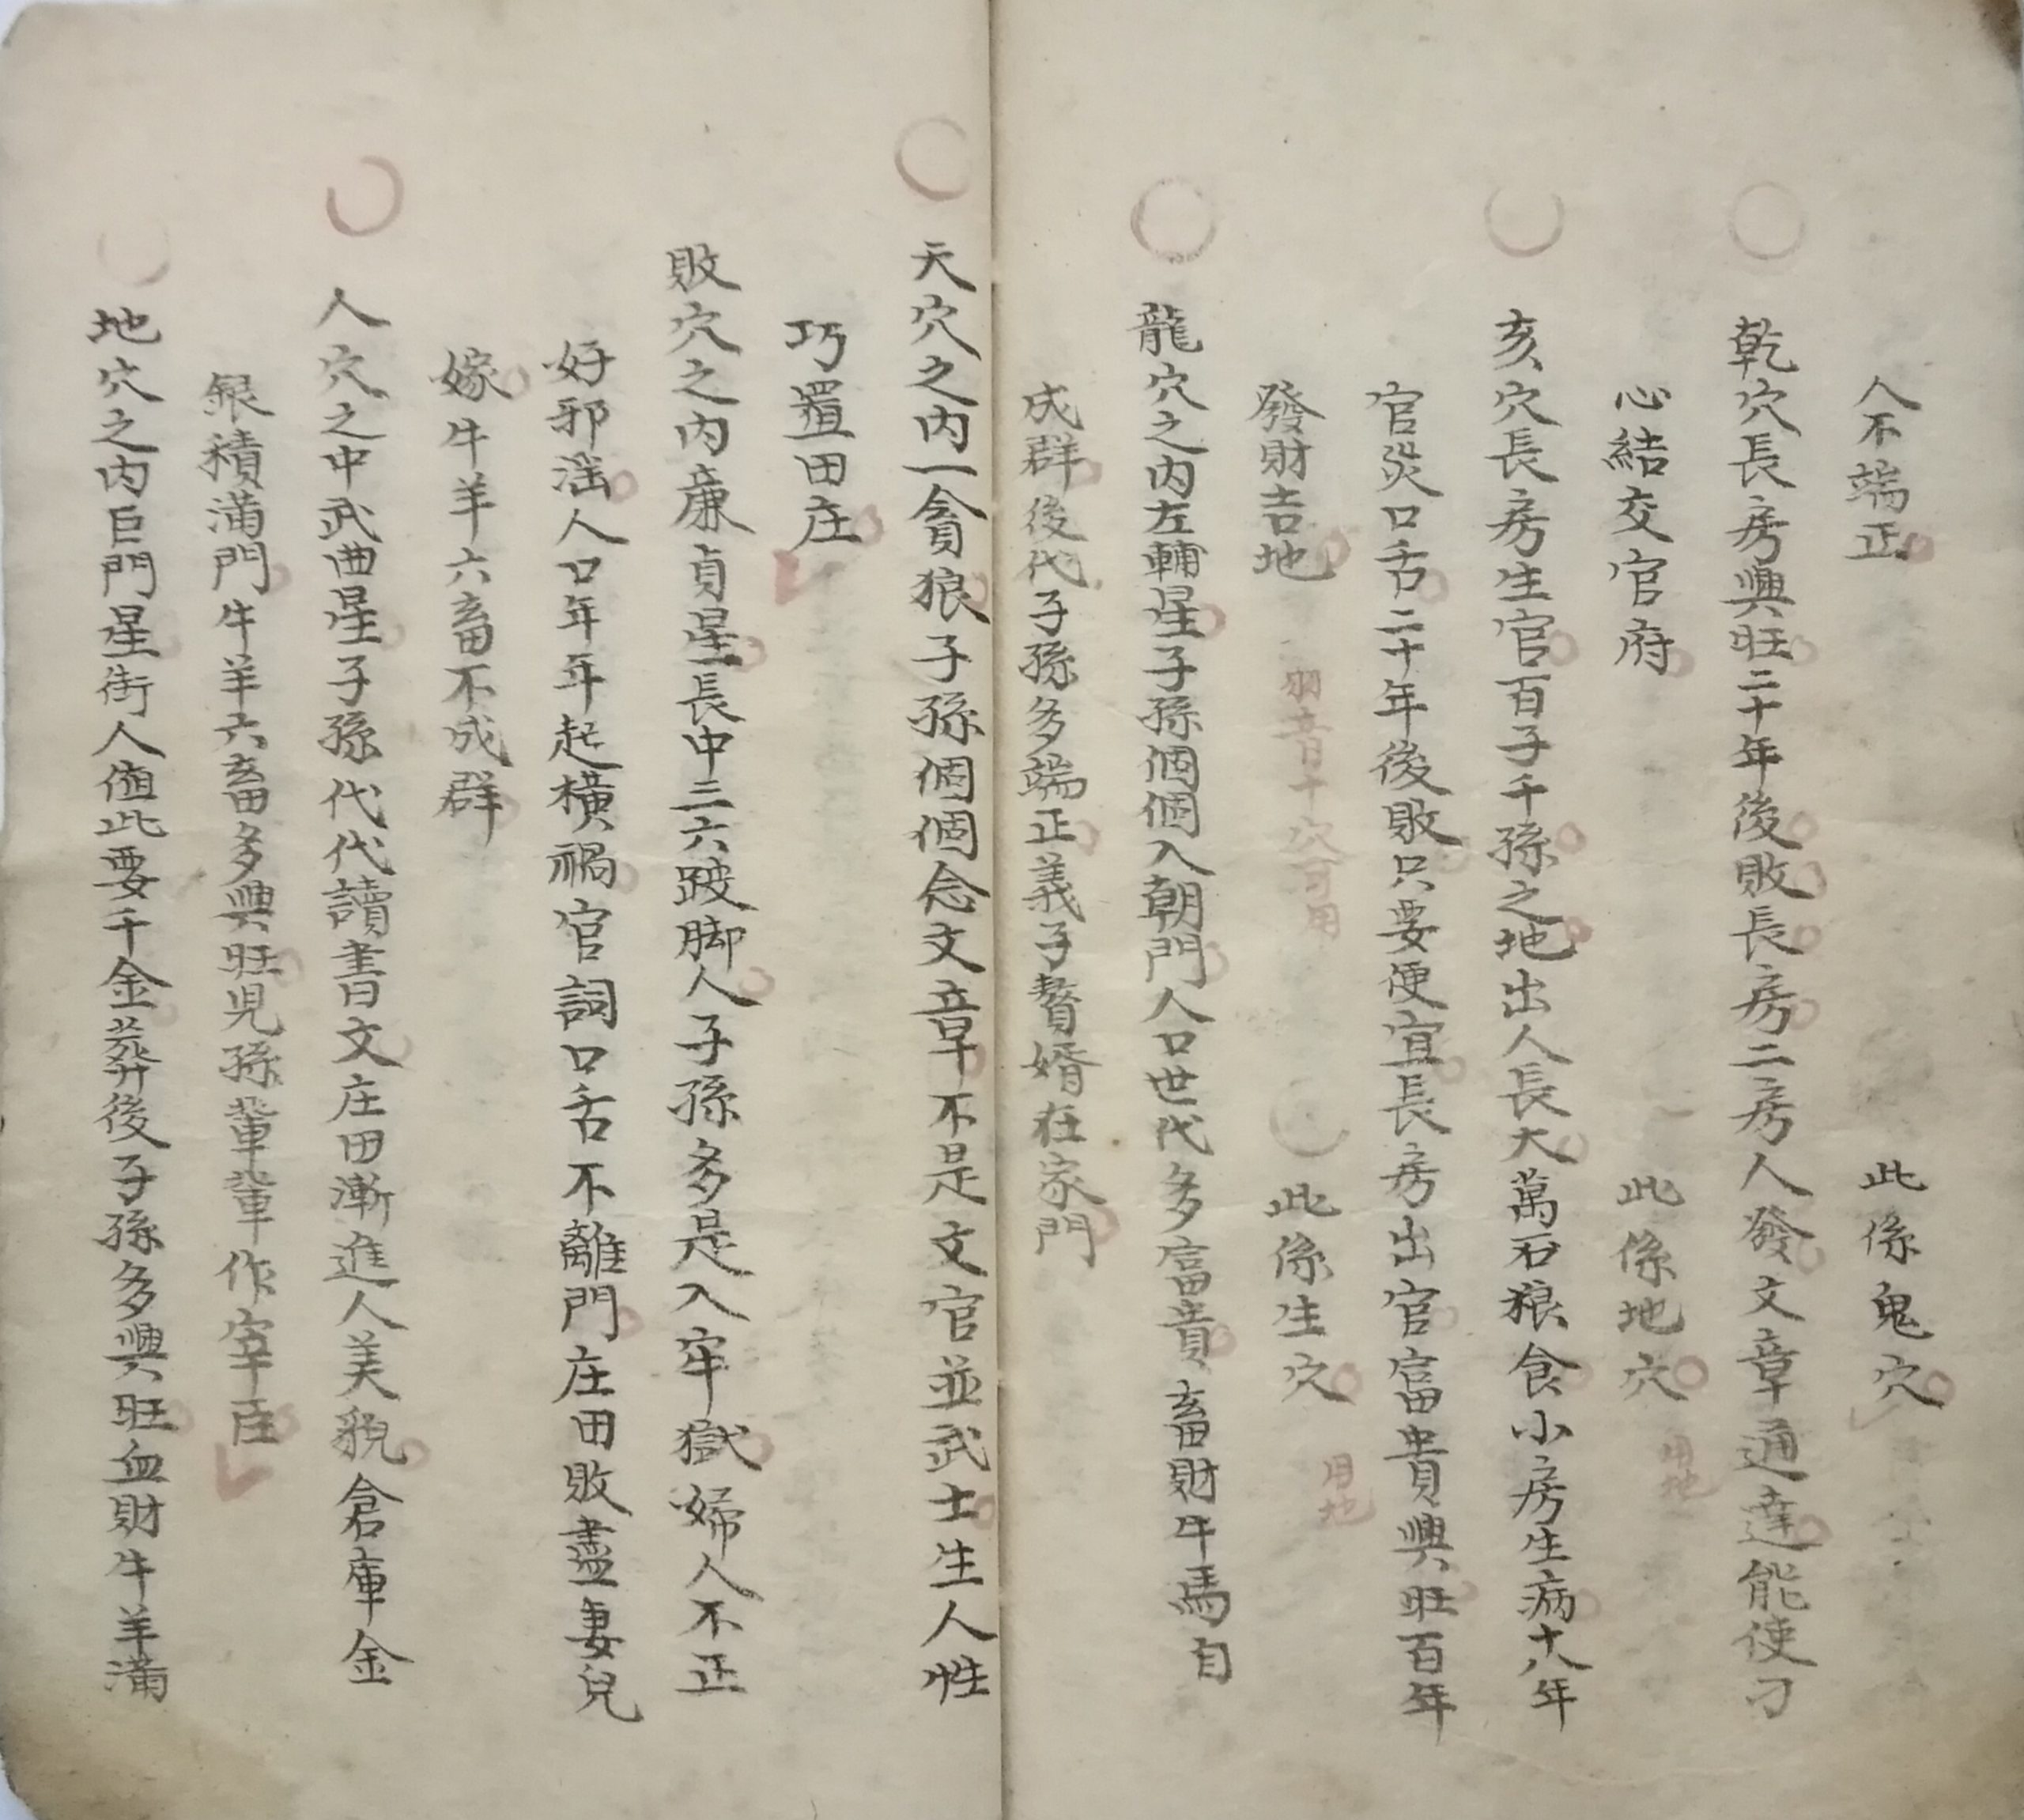 人不端正　此係鬼穴
乾穴長房興旺二十年後敗長房二房人發文章通達能使刁
心結交官府　此係地穴　用地
亥穴長房生官百子千孫之地出人長大萬石狼食小房生病十八年
官災口舌二十年後敗只要便宜長房出官富貴興旺百年
發財吉地　羽音千穴可用　此係生穴　用地
龍穴之内左輔星子孫個個入朝門人口世代多富貴畜財牛馬自
成群後代子孫多端正義子贅婿在家門
天穴之内一貪狼子孫個個念文章不是文官並武士生人性
巧置田庄
敗穴之内廉貞星長中三六跛脚人子孫多是入牢獄婦人不正
好邪滛人口年年起橫禍官詞口舌不離門庄田敗盡妻兒
嫁牛羊六畜不成群
人穴之中武曲星子孫代代讀書文庄田漸進人美貌倉庫金
銀積滿門牛羊六畜多興旺児孫輩輩作宰臣
地穴之内巨門星街人值此要千金葬後子孫多興旺血財牛羊滿